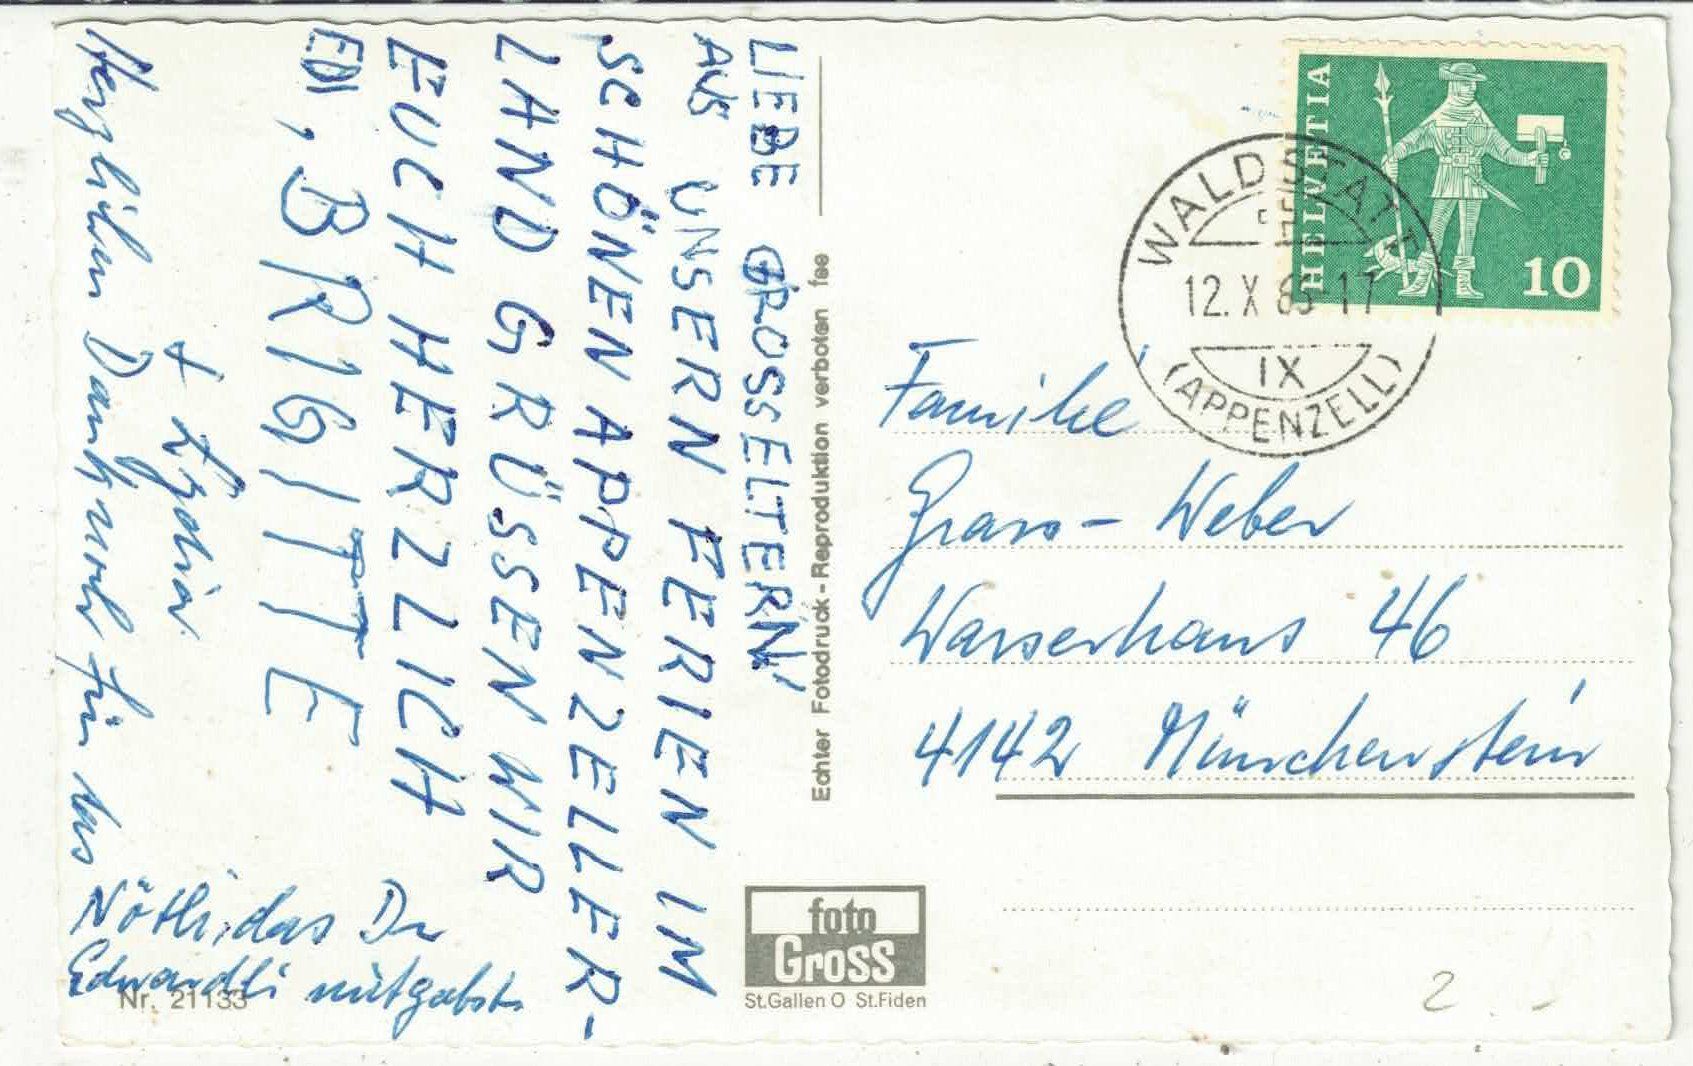 LIEBE GROSSELTERN!
AUS UNSERN FERIEN IM
SCHÖNEN APPENZELLER-
LAND GRÜSSEN WIR
EUCH HERZLICH
EDI, BRIGITTE
+ Lydia.
Herzlichen Dank noch für das
Nötli, das Du
Edwardli mitgabst.
Nr. 21133
Echter Fotodruck - Reproduktion verboten fee
foto
Gross
St.Gallen O St.Fiden
HELVETIA
10
WALDSTATT
12. X 17
IX
(APPENZELL)
Familie
Grass-Weber
Wasserhaus 46
4142 Münchenstein
2.-